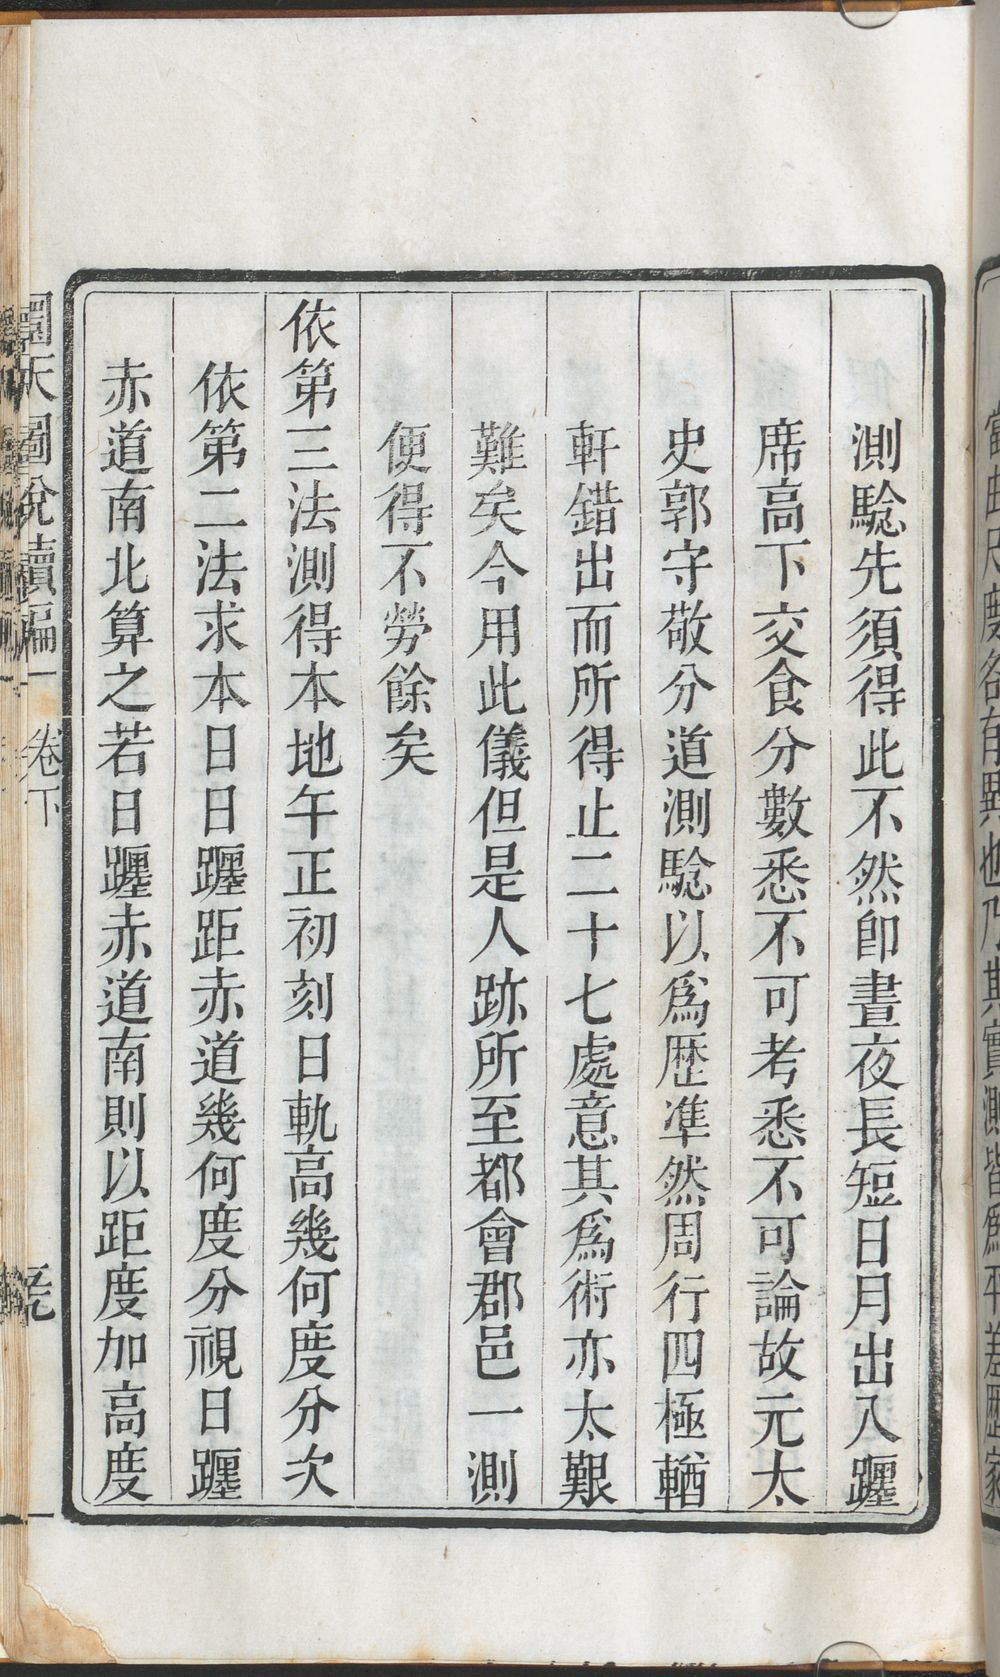 測驗先須得此不然卽晝夜長短日月出入躔
席高下交食分數悉不可考悉不可論故元太
史郭守敬分道測驗以爲歴準然周行四極輶
軒錯出而所得止二十七處意其爲術亦太艱
難矣今用此儀但是人跡所至都會郡邑一測
便得不勞餘矣
依第三法測得本地午正初刻日軌高幾何度分次
依第二法求本日日躔距赤道幾何度分視日躔
赤道南北算之若日躔赤道南則以距度加高度
圜天圖說續編 卷下
當曲尺度各有異也乃其實測皆爲平差歴家